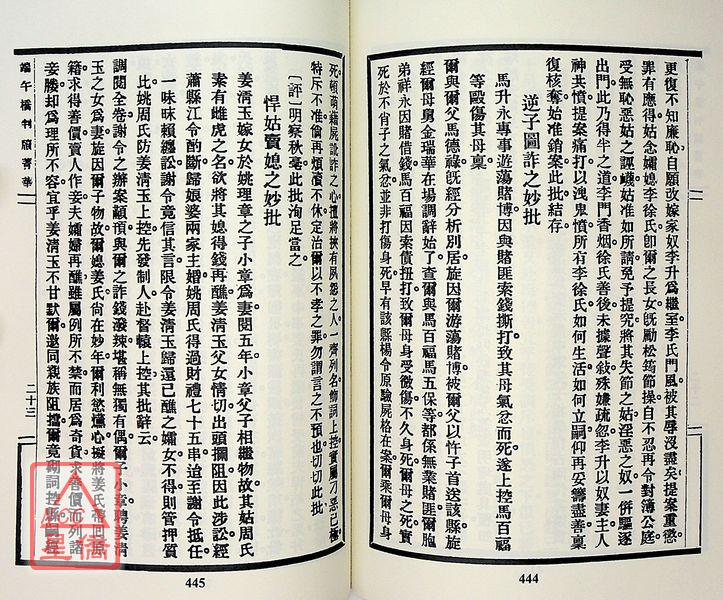 更復不知廉恥自願改嫁家奴李升為繼室李氏門風被其辱沒盡矣提案重懲
罪有應得姑念孀媳李徐氏卽爾之長女旣勵松筠節操自不忍再令對簿公庭
受無恥惡姑之誣衊姑准如所請免予提究將其失節之姑淫惡之奴一併驅逐
出門此乃得半之道李門香烟徐氏善後未據聲敍殊嫌疏忽李升以奴妻主人
神共憤提案痛打以洩鬼憤所有李徐氏如何生活如何立嗣仰再妥籌盡善稟
復核奪始准銷案此批結存
逆子圖詐之妙批
馬升永專事遊蕩賭博因與賭匪索錢撕打致其母氣忿而死遂上控馬百福
等毆傷其母稟
爾與爾父馬德祿旣經分析別居旋因爾游蕩賭博被爾父以忤子首送該縣旋
經爾母舅金瑞華在場調辭始了查爾與馬百福馬五保等都係無業賭匪爾胞
弟祥永因賭借錢馬百福因索債扭打致爾母身受微傷不久身死爾母之死實
死於不肖子之氣忿並非打傷身死早有該縣楊令原驗屍格在案爾乘爾母身
死頓萌藉屍訛詐之心擅將挾有夙怨之人一齊列名飾詞上控實屬刁惡已極
特斥不准倘再煩瀆不休定治爾以不孝之罪勿謂言之不預也切切此批
〔評〕明察秋毫此批洵足當之
悍姑賣媳之妙批
姜清玉嫁女於姚理章之子小章為妻閱五年小章父子相繼物故其姑周氏
素有雌虎之名欲將其媳得錢再醮姜清玉父女情切出頭攔阻因此涉訟經
蕭縣江令酌斷歸娘婆兩家主婚姚周氏得過財禮七十五串迨至謝令抵任
一味昧賴纏訟謝令竟信其言限令姜清玉歸還已醮之孀女不得則管押質
比姚周氏防姜清玉上控先發制人赴督轅上控其批辭云
調閱全卷謝令之辦案顢頇與爾之詐錢潑辣堪稱無獨有偶爾子小章聘姜清
玉之女為妻旋因爾子物故爾媳姜氏尙在妙年爾利慾燻心擬將姜氏帶回原
籍求得善價賣人作妾夫孀婦再醮雖屬例所不禁而居為奇貨求善價而列諸
妾媵却為理所不容宜乎姜清玉不甘默爾邀同親族阻攔爾竟砌詞控縣
端午橋判牘菁華
二十三
445
444
皇僑